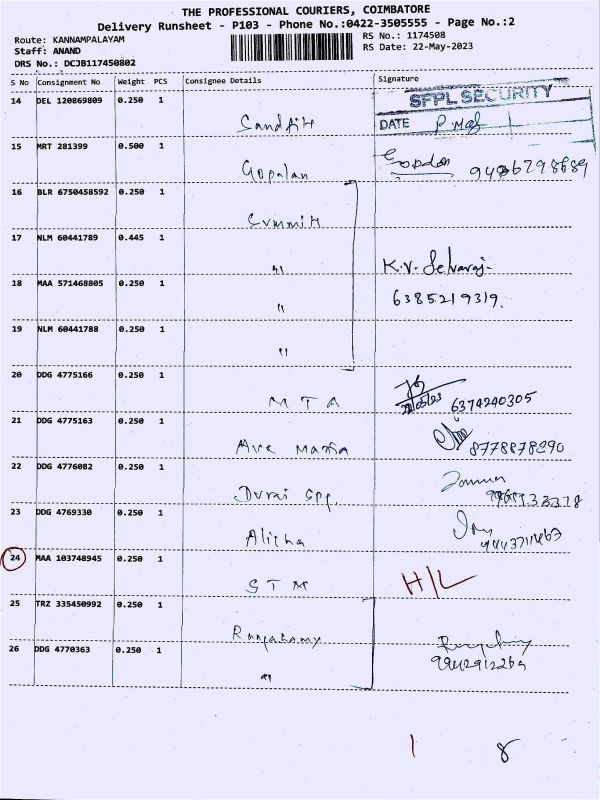 THE PROFESSIONAL COURIERS, COIMBATORE
Delivery Runsheet - P103 - Phone No.:0422-3505555 - Page No.:2
Route: KANNAMPALAYAM RS No.: 1174508
Staff: ANAND RS Date: 22-May-2023
DRS No.: DCJB117450802
S No Consignment No Weight PCS Consignee Details Signature
14 DEL 120869809 0.250 1 SFPL SECURITY
DATE
15 MRT 281399 0.500 1
Gopalan Gopalan
16 BLR 6750458592 0.250 1
Summit
17 NLM 60441789 0.445 1
" K.V. Selvaraj
18 MAA 571468805 0.250 1 6385219319.
"
19 NLM 60441788 0.250 1
"
20 DDG 4775166 0.250 1
M T A 22/05/23 6374240305
21 DDG 4775163 0.250 1
Ave Maria 8778878290
22 DDG 4776082 0.250 1
Durai
23 DDG 4769330 0.250 1
24 MAA 103748945 0.250 1
S T M H/L
25 TRZ 335450992 0.250 1
26 DDG 4770363 0.250 1
"
1 8